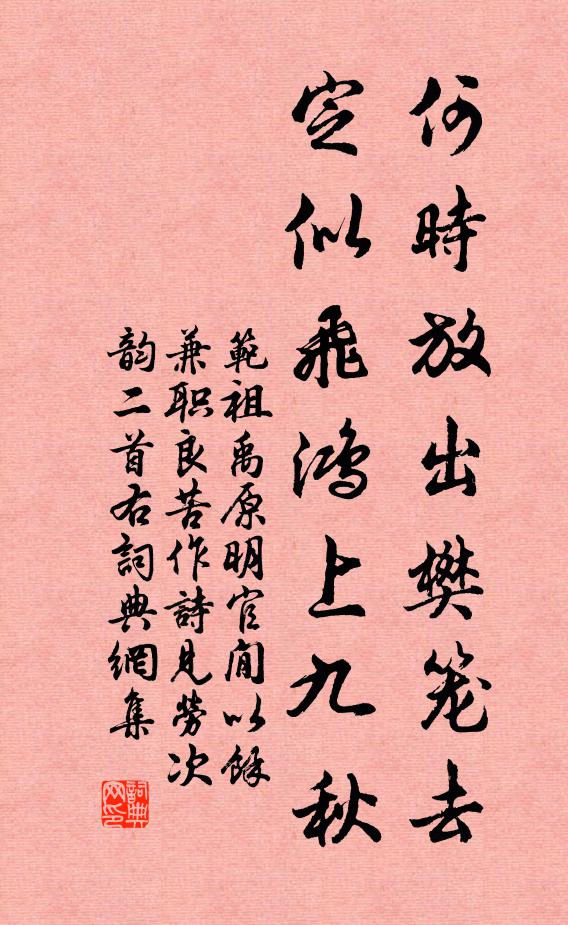 何時放出樊笼去
定似飛鴻上九秋
範祖禹原明官閒以餘
兼职良苦作詩見勞次
韵二首右詞典網集
詞典网印